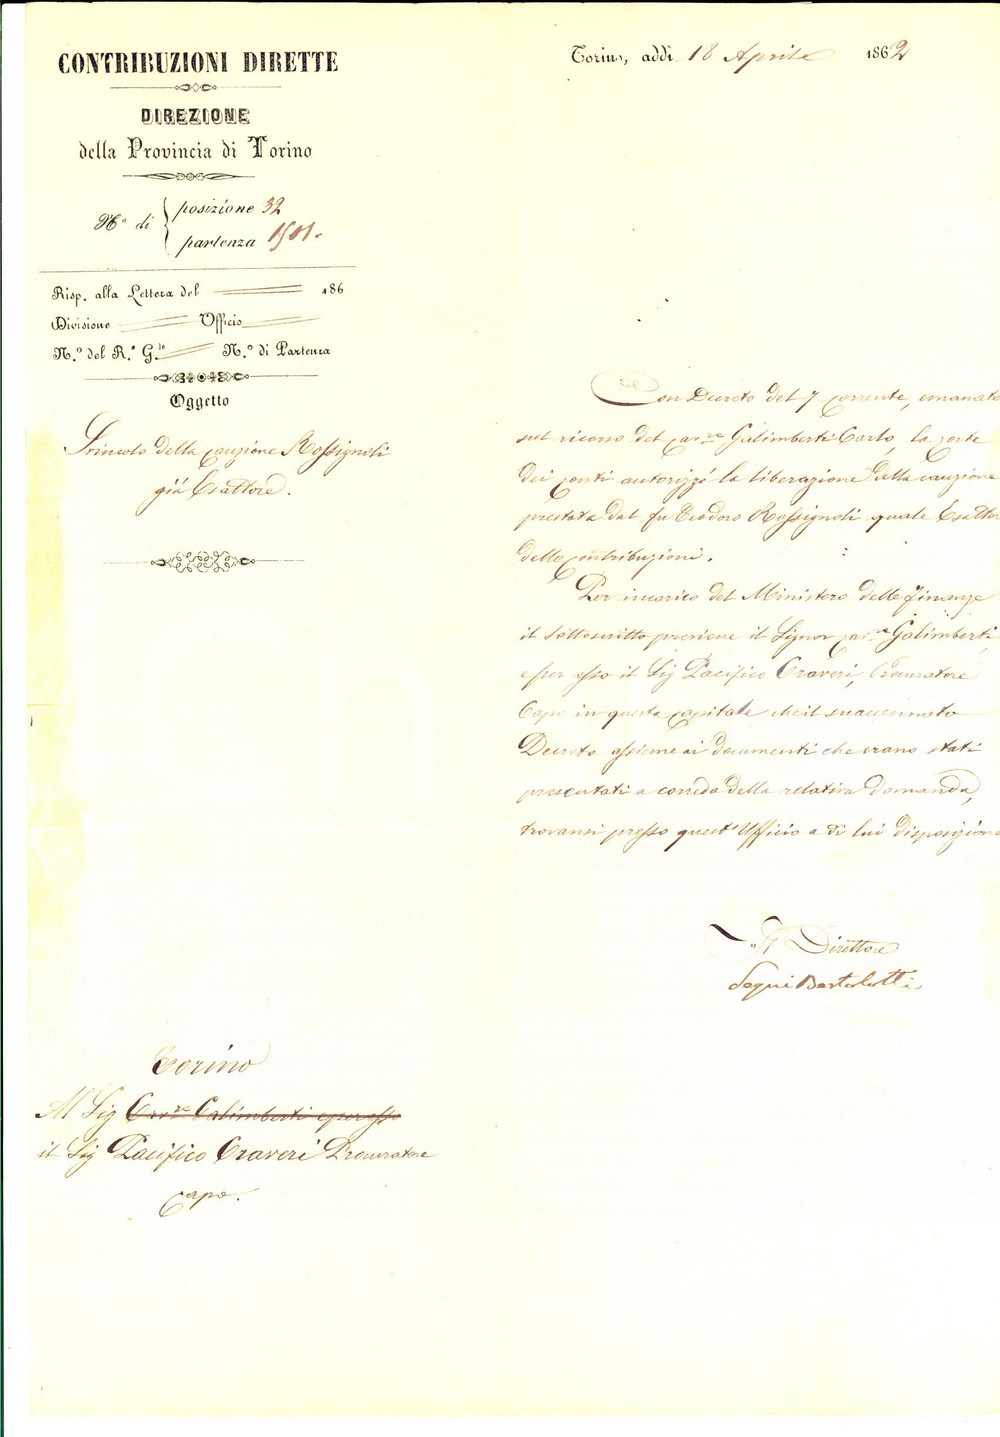 CONTRIBUZIONI DIRETTE
DIREZIONE
della Provincia di Torino
N.° di { posizione 32
partenza 1501.
Risp. alla Lettera del 186
Divisione Ufficio
N.° del R.° G.le N.° di Partenza
Oggetto
Svincolo della cauzione Rossignoli
già Esattore.
Torino, addì 18 Aprile 1862
Con Decreto del 7 corrente, emanato
sul ricorso del Cav.re Galimberti Carlo, la Corte
dei Conti autorizzò la liberazione della cauzione
prestata dal fu Teodoro Rossignoli quale Esattore
delle Contribuzioni.
Per incarico del Ministero delle Finanze
il sottoscritto previene il Signor Cav.re Galimberti,
e per esso il Sig Pacifico Craveri, Procuratore
Capo in questa Capitale che il suaccennato
Decreto assieme ai documenti che erano stati
presentati a corredo della relativa domanda,
trovansi presso quest'Ufficio a di lui disposizione
Il Direttore
Segni Bartolotti
Torino
Al Sig Cav.re Galimberti e per esso
il Sig Pacifico Craveri Procuratore
Capo.